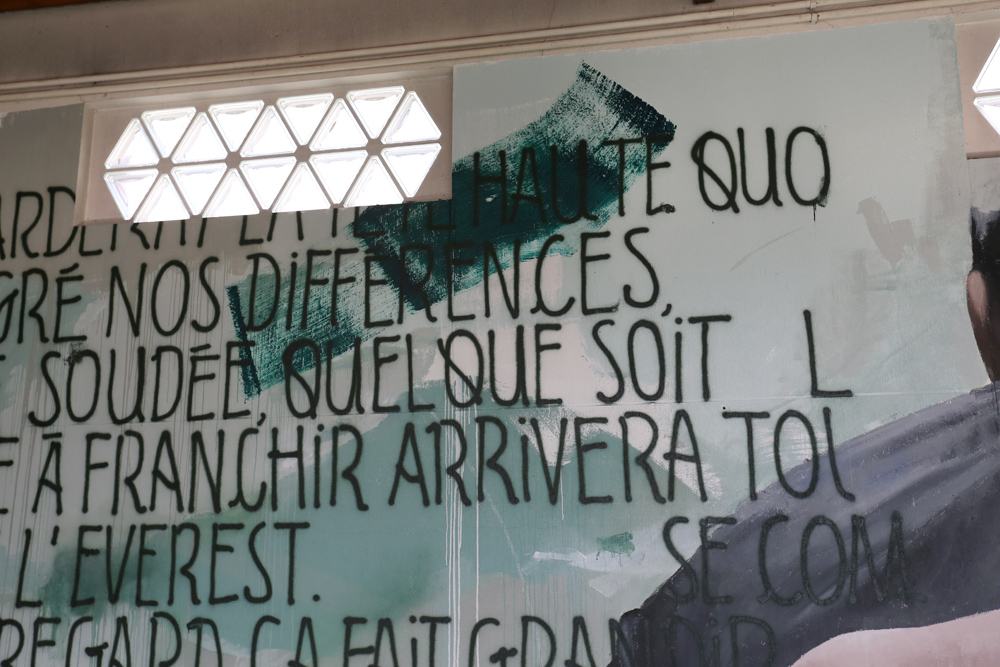 LA TÊTE HAUTE QUO
GRÉ NOS DiFFÉRENCES,
SOUDÉE, QUELQUE SOiT L
À FRANCHiR ARRiVERA TOU
L'EVEREST. SE COM
REGARD ÇA FAiT GRANDiR